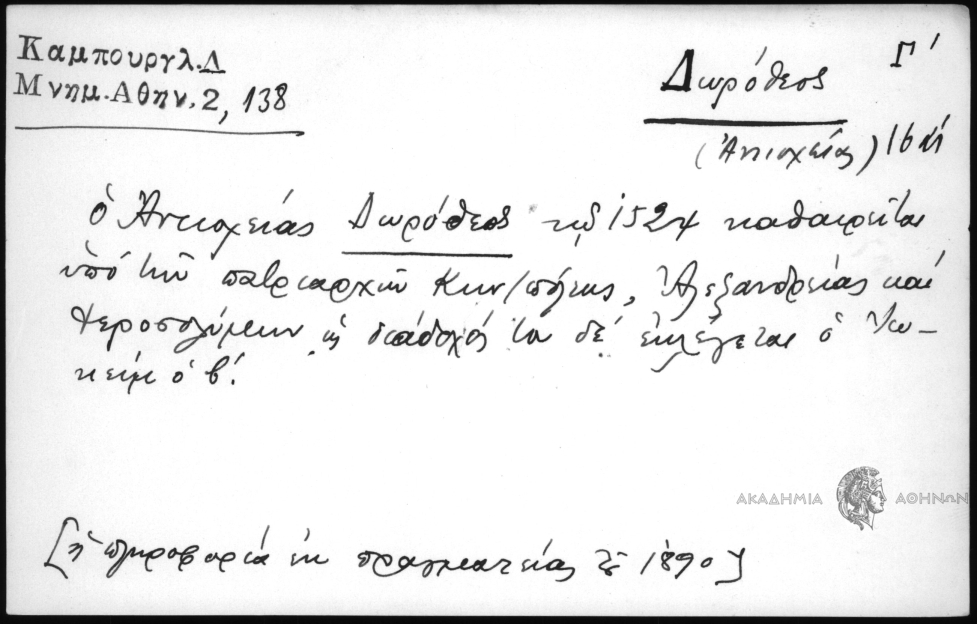 Καμπουργλ.Δ
Μνημ.Αθην.2, 138
Δωρόθεος Γ'
(Ἀντιοχείας) 16 αἰ
ὁ Ἀντιοχείας Δωρόθεος τῷ 1524 καθαιρεῖται
ὑπό τῶν πατριαρχῶν Κων/πόλεως, Ἀλεξανδρείας καί
Ἱεροσολύμων ὡς διάδοχός του δέ ἐκλέγεται ὁ Ἰωα-
κείμ ὁ β'.
ΑΚΑΔΗΜΙΑ ΑΘΗΝΩΝ
[ἡ πληροφορία ἐκ πραγματείας τοῦ 1890]